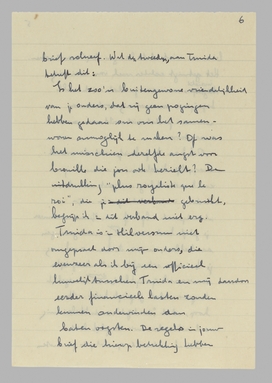 6
brief schreef. Wat de tweede, aan Truida
betreft dit:
Is het zoo'n buitengewone vriendelijkheid
van je ouders, dat zij geen pogingen
hebben gedaan om ons het samen-
wonen onmogelijk te maken? Of was
het misschien dezelfde angst voor
brouille die jou ook bezielt? De
uitdrukking "plus royaliste que le
roi", die je gebruikt,
begrijp ik in dit verband niet erg.
Truida is in Hilversum niet
door mijn ouders, die
evenzeer als ik bij een officieel
huwelijk tusschen Truida en mij daardoor
eerder financieele lasten zouden
kunnen ondervinden dan
baten oogsten. De regels in jouw
brief die hierop betrekking hebben